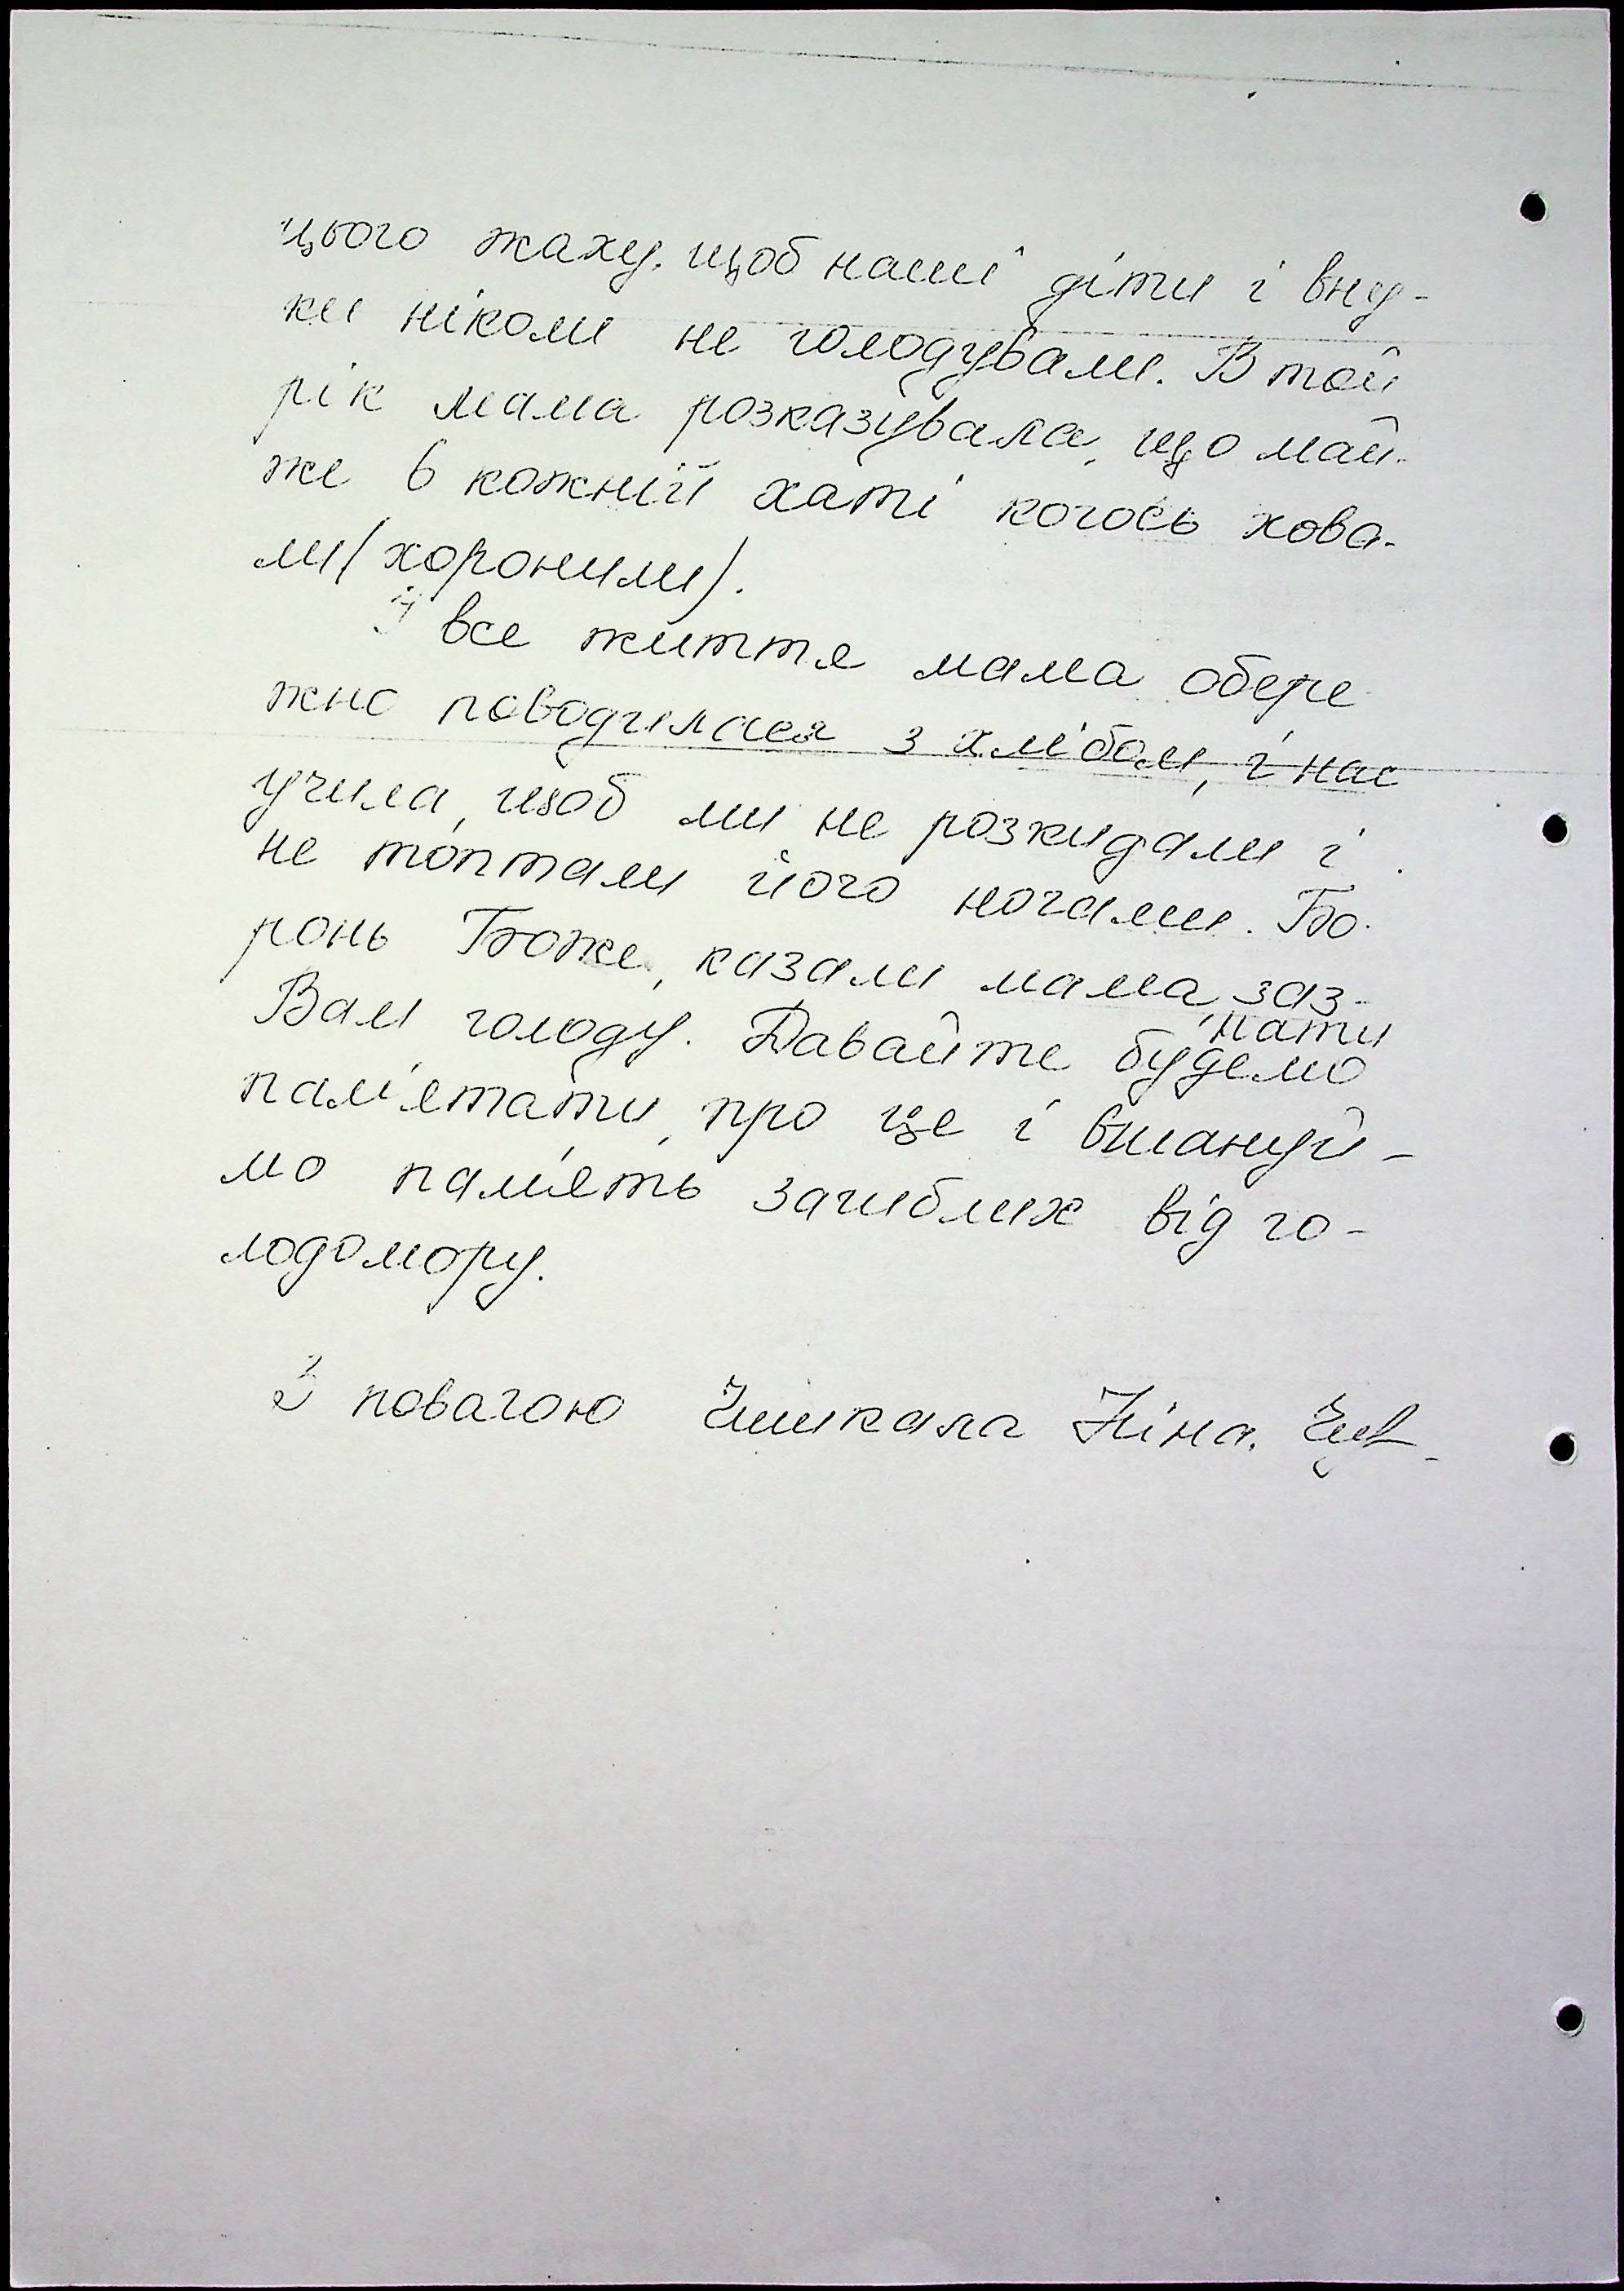 цього жаху, щоб наші діти і вну-
ки ніколи не голодували. В той
рік мама розказувала, що май-
же в кожній хаті когось хова-
ли (хоронили).
І все життя мама обере
жно поводилася з хлібом, і нас
учила, щоб ми не розкидали і
не топтали його ногами. Бо-
ронь Боже, казали мама, заз-
нати
Вам голоду. Давайте будемо
пам'ятати про це і вшануй-
мо пам'ять загиблих від го-
лодомору.
З повагою Чишкала Ніна.